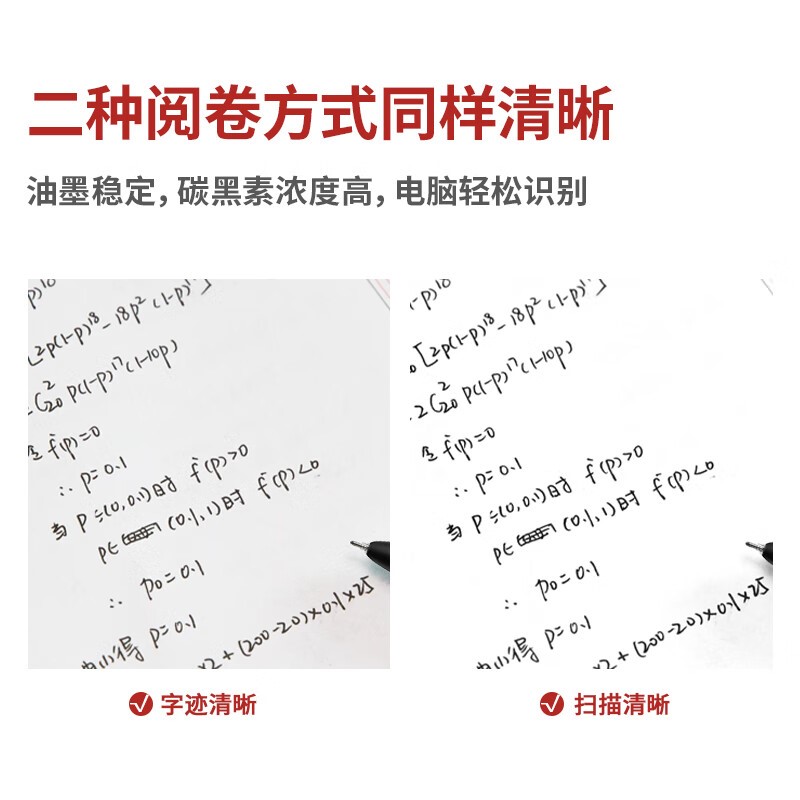 二种阅卷方式同样清晰
油墨稳定，碳黑素浓度高，电脑轻松识别
[2p(1-p)¹⁸-18p²(1-p)¹⁷]
C²₂₀ p(1-p)¹⁷(1-10p)
f'(p)=0
∴ p=0.1
当 p∈(0,0.1)时 f'(p)>0
p∈ (0.1,1)时 f'(p)<0
∴ p₀=0.1
得 p=0.1
×2+(200-20)×0.1×25
.2C²₂₀ p(1-p)¹⁷(1-10p)
[2p(1-p)¹⁸-18p²(1-p)¹⁷]
f'(p)=0
∴ p=0.1
当 p∈(0,0.1)时 f'(p)>0
p∈ (0.1,1)时 f'(p)<0
∴ p₀=0.1
得 p=0.1
×2+(200-20)×0.1×25
字迹清晰
扫描清晰